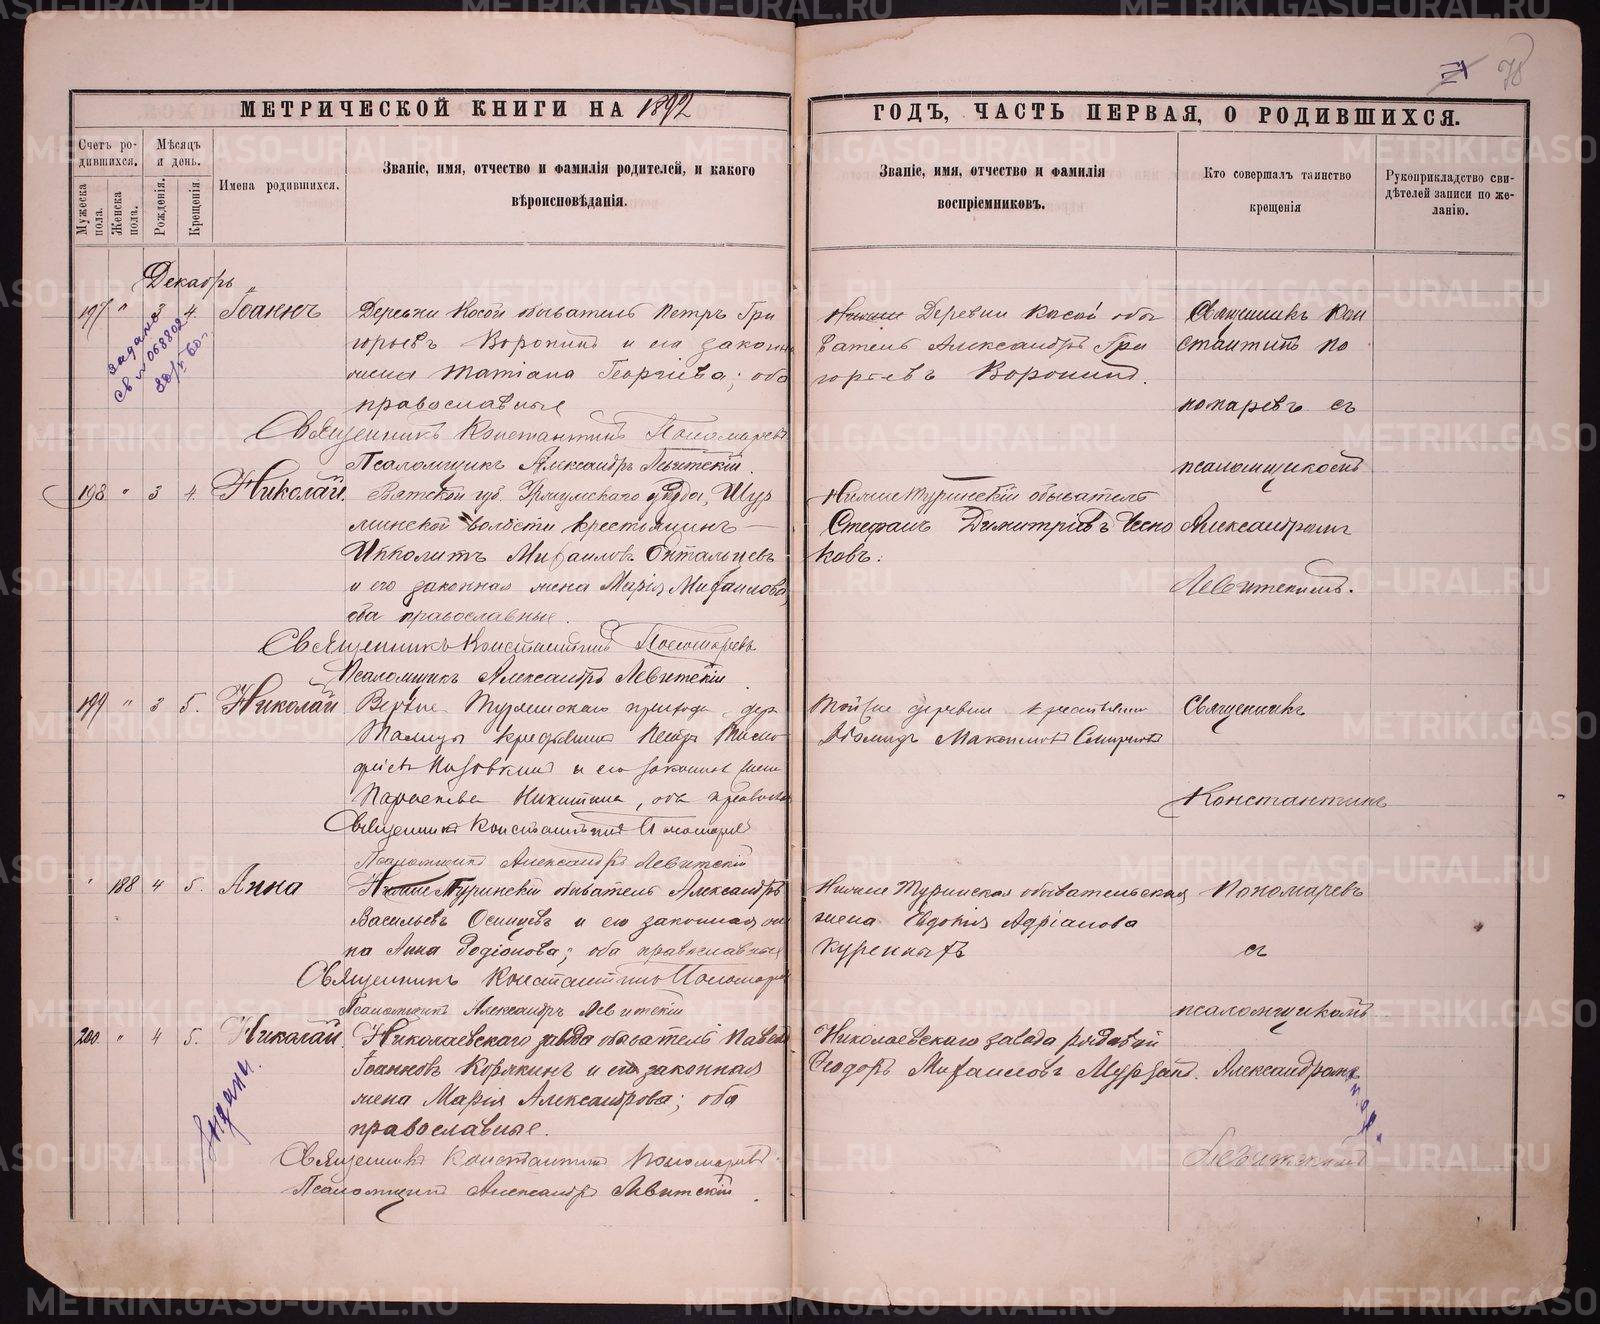 МЕТРИЧЕСКОЙ КНИГИ НА 1892
ГОДЪ, ЧАСТЬ ПЕРВАЯ, О РОДИВШИХСЯ.
78
Счетъ родившихся.
Мужеска пола.
Женска пола.
Мѣсяцъ и день.
Рожденія.
Крещенія.
Имена родившихся.
Званіе, имя, отчество и фамилія родителей, и какого
вѣроисповѣданія.
Званіе, имя, отчество и фамилія
воспріемниковъ.
Кто совершалъ таинство
крещенія
Рукоприкладство свидѣтелей записи по желанію.
Декабрь
197 " 3 4. Іоаннъ
Деревни Косой обыватель Петръ Гри
горьевъ Воронинъ и его законн
жена Татіана Георгіева; оба
православные
Священникъ Константинъ Пономаревъ
Псаломщикъ Александръ Левитскій.
Деревни Косой обы
ватель Александръ Гри
горьевъ Воронинъ.
Священникъ Кон
стантинъ По
номаревъ съ
псаломщикомъ
198 " 3 4. Николай.
Вятской губ. Уржумскаго уѣзда, Шур
минской волости крестьянинъ
Ипполитъ Михаиловъ
и его законная жена Марія Михаилова,
оба православные.
Священникъ Константинъ Пономаревъ
Псаломщикъ Александръ Левитскій
Нижнетуринскій обыватель
Стефанъ Димитріевъ Чесно
ковъ.
Александромъ
Левитскимъ.
199 " 3 5. Николай
Верхне Туринскаго прихода дер
Талицы Петръ
и его законная жена
Параскева Никитина, оба православн
Священникъ Константинъ Пономаревъ
Псаломщикъ Александръ Левитскій
Той же деревни крестьянинъ
Максимовъ Смирновъ
Священникъ
Константинъ
" 188 4 5. Анна
Нижнетуринскій обыватель Александръ
Васильевъ Осинцевъ и его законная же
на Анна Родіонова; оба православные
Священникъ Константинъ Пономаревъ
Псаломщикъ Александръ Левитскій
Нижнетуринская обывательская
жена Евдокія Адріанова
Куренныхъ
Пономаревъ
съ
псаломщикомъ
200 " 4 5. Николай.
Николаевскаго завода обыватель Павелъ
Іоанновъ Корякинъ и его законная
жена Марія Александрова; оба
православные.
Священникъ Константинъ Пономаревъ.
Псаломщикъ Александръ Левитскій.
Николаевскаго завода рядовой
Ѳеодоръ Михаиловъ Мурзинъ.
Александромъ
Левитскимъ
METRIKI.GASO-URAL.RU